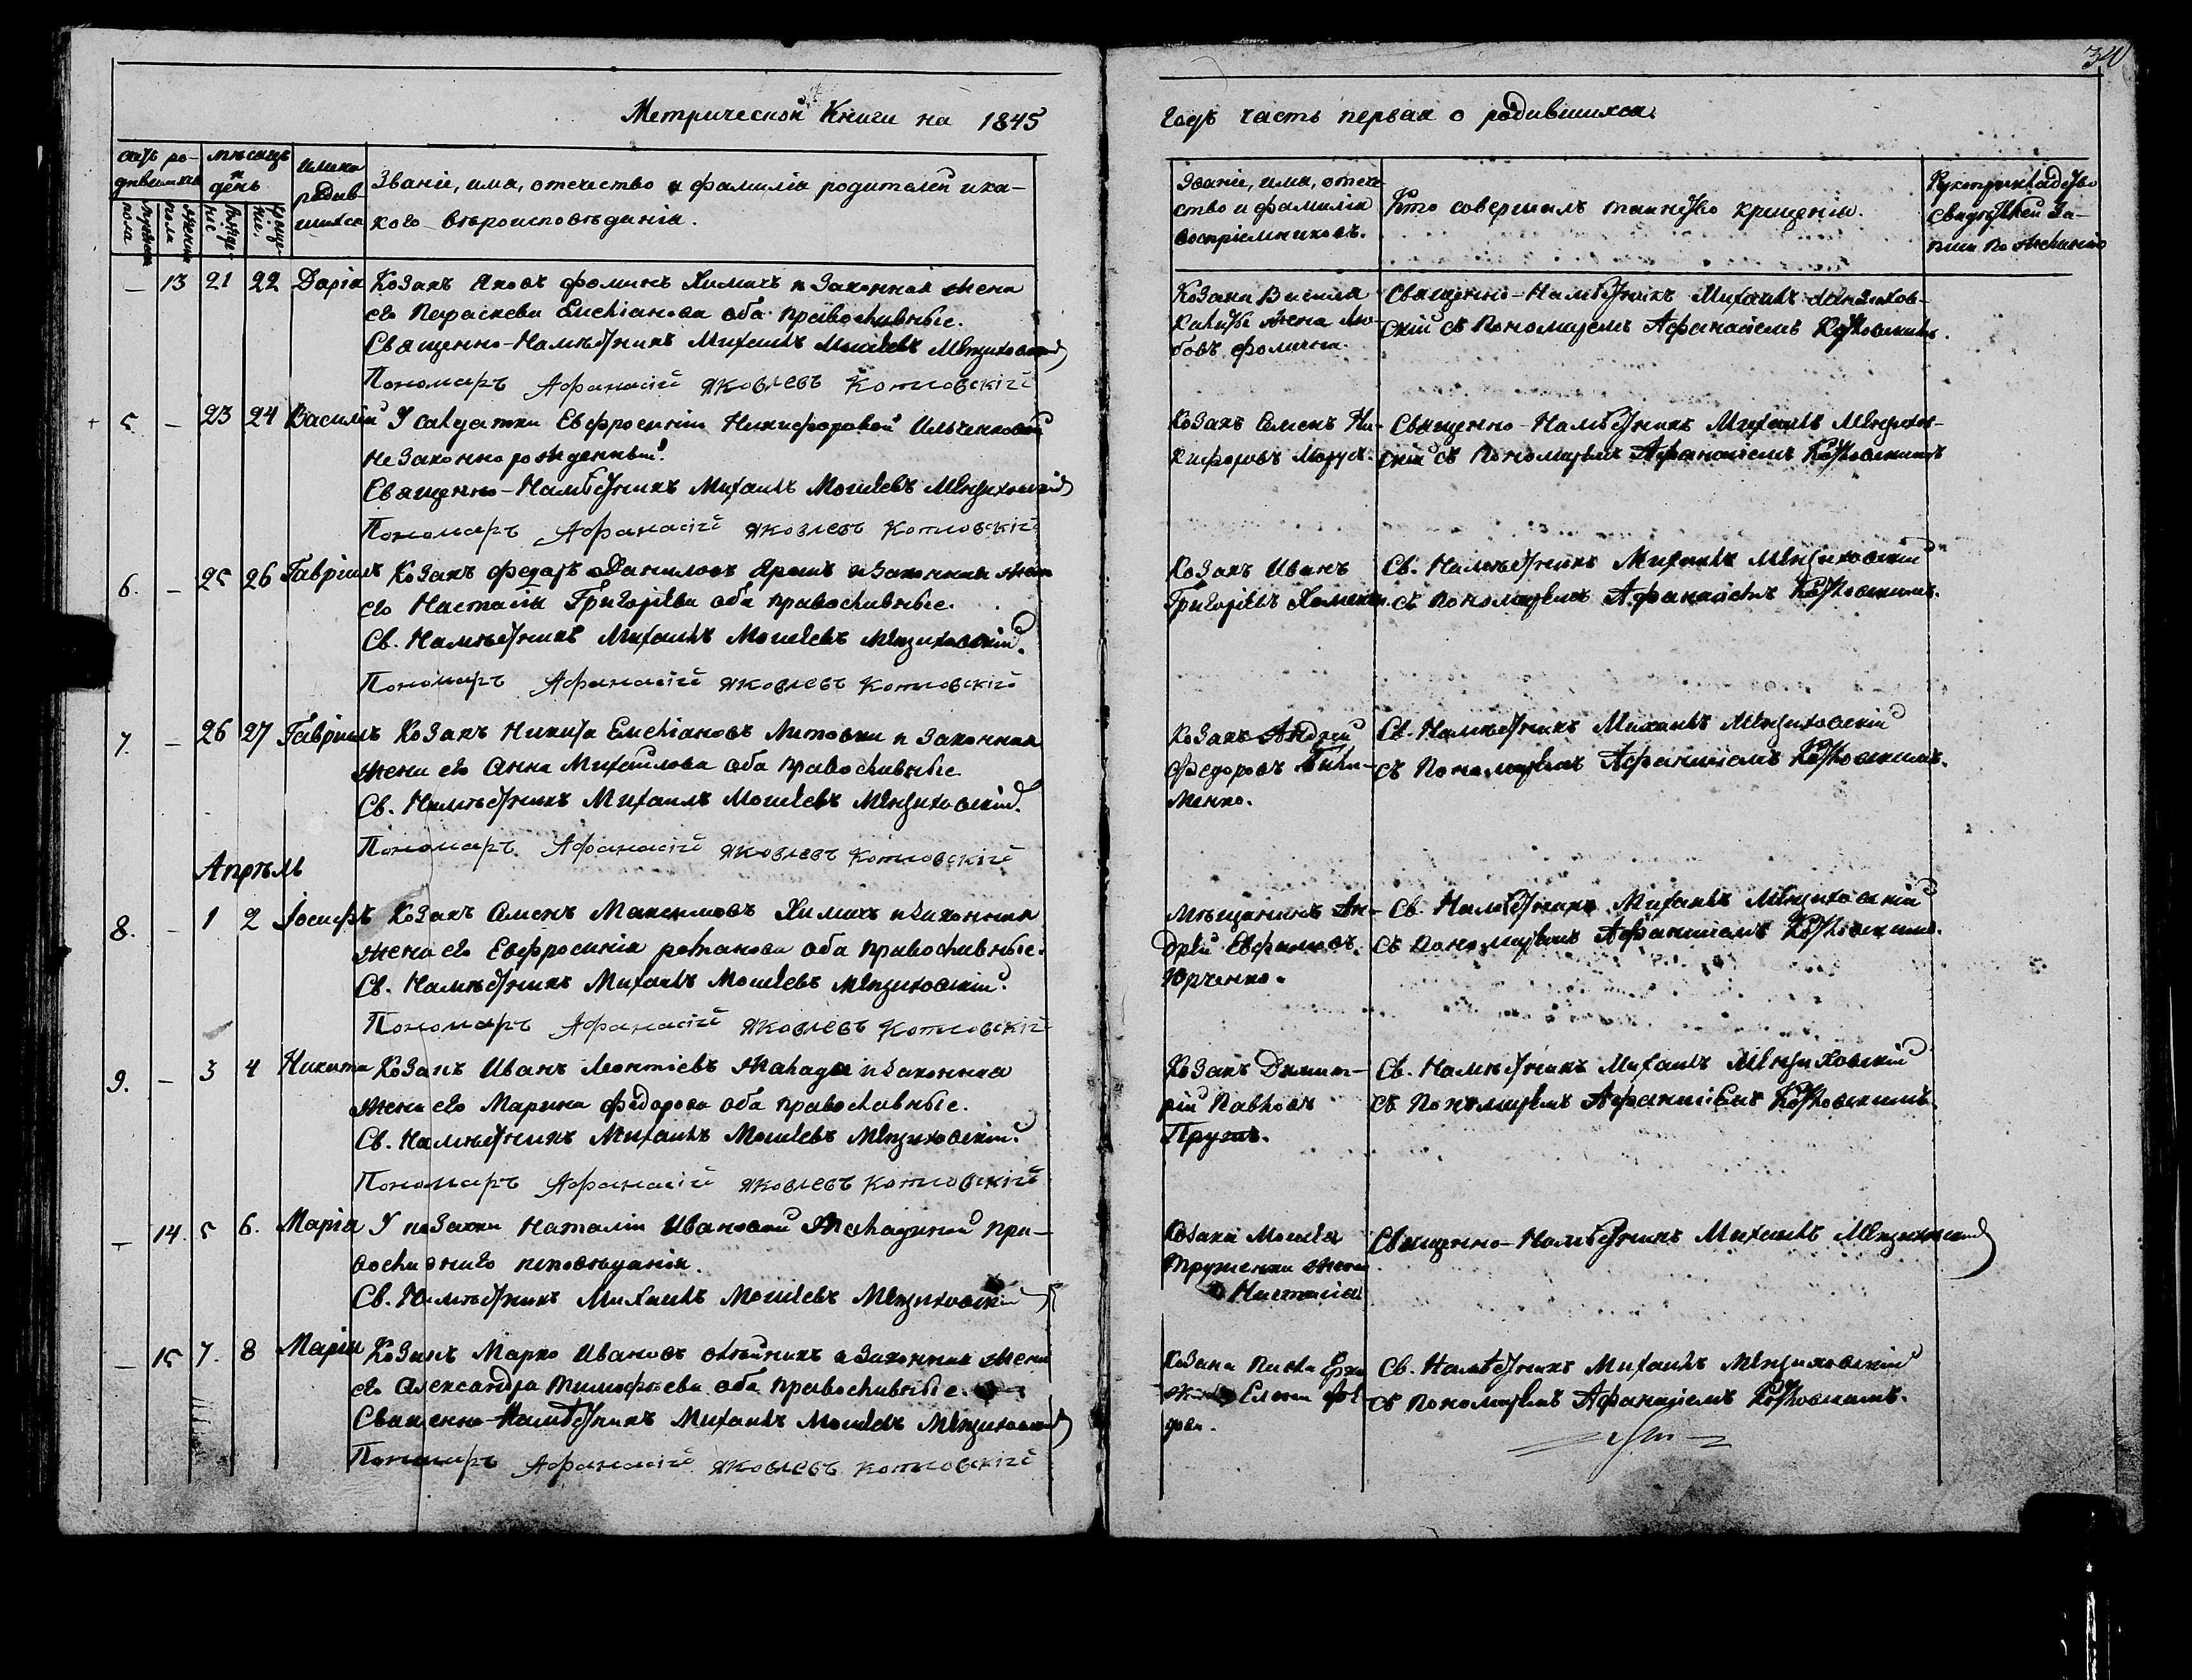 340
Метрической Книги на 1845
Годъ часть первая о родившихся.
счетъ ро-
дившихся
мѣсяцъ
и
день
имена
родив-
шихся
Званіе, имя, отечество и фамилія родителей и ка-
кого вѣроисповѣданія.
мужеска
пола
женска
пола
рожде-
ніе
креще-
ніе.
Званіе, имя, отече-
ство и фамилія
воспріемниковъ.
Кто совершалъ таинство крещенія.
Рукоприкладство
свидѣтелей за-
писи по желанію
— 13 21 22 Дарія Козакъ Яковъ Фоминъ Химичъ и законная жена
его Параскева Емеліанова оба православные.
Священно-Намѣстникъ Михаилъ Моисеевъ Мензиховскій
Пономарь Афанасій Яковлевъ Котловскій
Козака Василія
жена Лю-
бовь Фомична.
Священно-Намѣстникъ Михаилъ
скій съ Пономаремъ Афанасіемъ Котловскимъ.
5. — 23 24 Василій У салдатки Евфросиніи Никифоровой Ильченковой
незаконнорожденный.
Священно-Намѣстникъ Михаилъ Моисеевъ Мензиховскій
Пономарь Афанасій Яковлевъ Котловскій
Козакъ Семенъ Ни-
кифоровъ
Священно-Намѣстникъ Михаилъ Мензихов-
скій съ Пономаремъ Афанасіемъ Котловскимъ
6. — 25 26 Гавріилъ Козакъ Федоръ Даниловъ Ярошъ и законная жена
его Настасія Григоріева оба православные.
Св. Намѣстникъ Михаилъ Моисеевъ Мензиховскій.
Пономарь Афанасій Яковлевъ Котловскій
Козакъ Иванъ
Григоріевъ
Св. Намѣстникъ Михаилъ Мензиховскій
съ Пономаремъ Афанасіемъ Котловскимъ.
7. — 26 27 Гавріилъ Козакъ Никита Емеліановъ Литовка и законная
жена его Анна Михайлова оба православные.
Св. Намѣстникъ Михаилъ Моисеевъ Мензиховскій.
Пономарь Афанасій Яковлевъ Котловскій
Козакъ Андрей
Федоровъ
менко.
Св. Намѣстникъ Михаилъ Мензиховскій
съ Пономаремъ Афанасіемъ Котловскимъ.
Апрѣль
8. — 1 2 Іосифъ Козакъ Семенъ Максимовъ Химичъ и законная
жена его Евфросинія Романова оба православные.
Св. Намѣстникъ Михаилъ Моисеевъ Мензиховскій.
Пономарь Афанасій Яковлевъ Котловскій
Мѣщанинъ Ан-
дрей Евфимовъ
Юрченко.
Св. Намѣстникъ Михаилъ Мензиховскій
съ Пономаремъ Афанасіемъ Котловскимъ.
9. — 3 4 Никита Козакъ Иванъ Леонтіевъ Малада и законная
жена его Марина Федорова оба православные.
Св. Намѣстникъ Михаилъ Моисеевъ Мензиховскій.
Пономарь Афанасій Яковлевъ Котловскій
Козакъ Димит-
рій Павловъ
Св. Намѣстникъ Михаилъ Мензиховскій
съ Пономаремъ Афанасіемъ Котловскимъ.
— 14. 5 6. Марія У козачки Наталіи Ивановой пра-
вославнаго исповѣданія.
Св. Намѣстникъ Михаилъ Моисеевъ Мензиховскій
Козака Моисея
жена
Настасія
Священно-Намѣстникъ Михаилъ Мензиховскій
— 15 7. 8 Марія Козакъ Марко Ивановъ Олѣйникъ и законная жена
его Александра Тимофѣева оба православные.
Священно-Намѣстникъ Михаилъ Моисеевъ Мензиховскій
Пономарь Афанасій Яковлевъ Котловскій
Козака Павла
Елена Фе-
дова.
Св. Намѣстникъ Михаилъ Мензиховскій
съ Пономаремъ Афанасіемъ Котловскимъ.